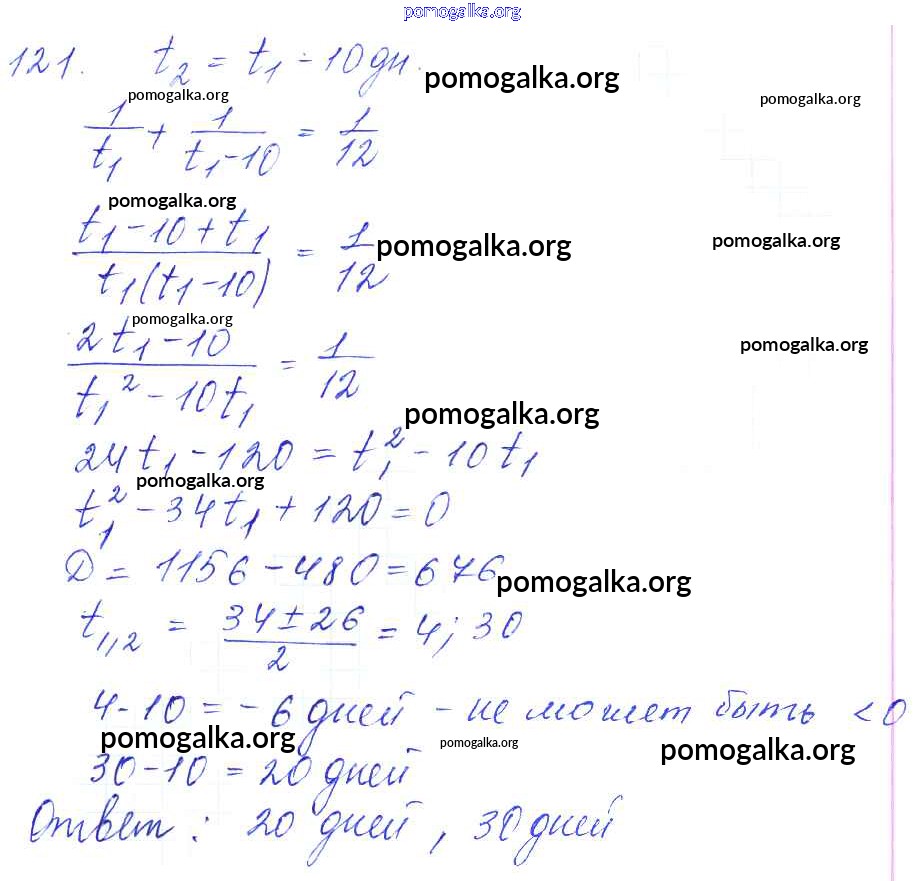 pomogalka.org
121. t₂ = t₁ - 10 дн. pomogalka.org
pomogalka.org pomogalka.org
1/t₁ + 1/(t₁-10) = 1/12
pomogalka.org
(t₁-10+t₁)/(t₁(t₁-10)) = 1/12 pomogalka.org pomogalka.org
pomogalka.org
(2t₁-10)/(t₁²-10t₁) = 1/12 pomogalka.org
pomogalka.org
24t₁ - 120 = t₁² - 10t₁
pomogalka.org
t₁² - 34t₁ + 120 = 0
D = 1156 - 480 = 676 pomogalka.org
t₁,₂ = (34 ± 26)/2 = 4; 30
4-10 = -6 дней - не может быть < 0
pomogalka.org pomogalka.org pomogalka.org
30-10 = 20 дней
Ответ: 20 дней, 30 дней